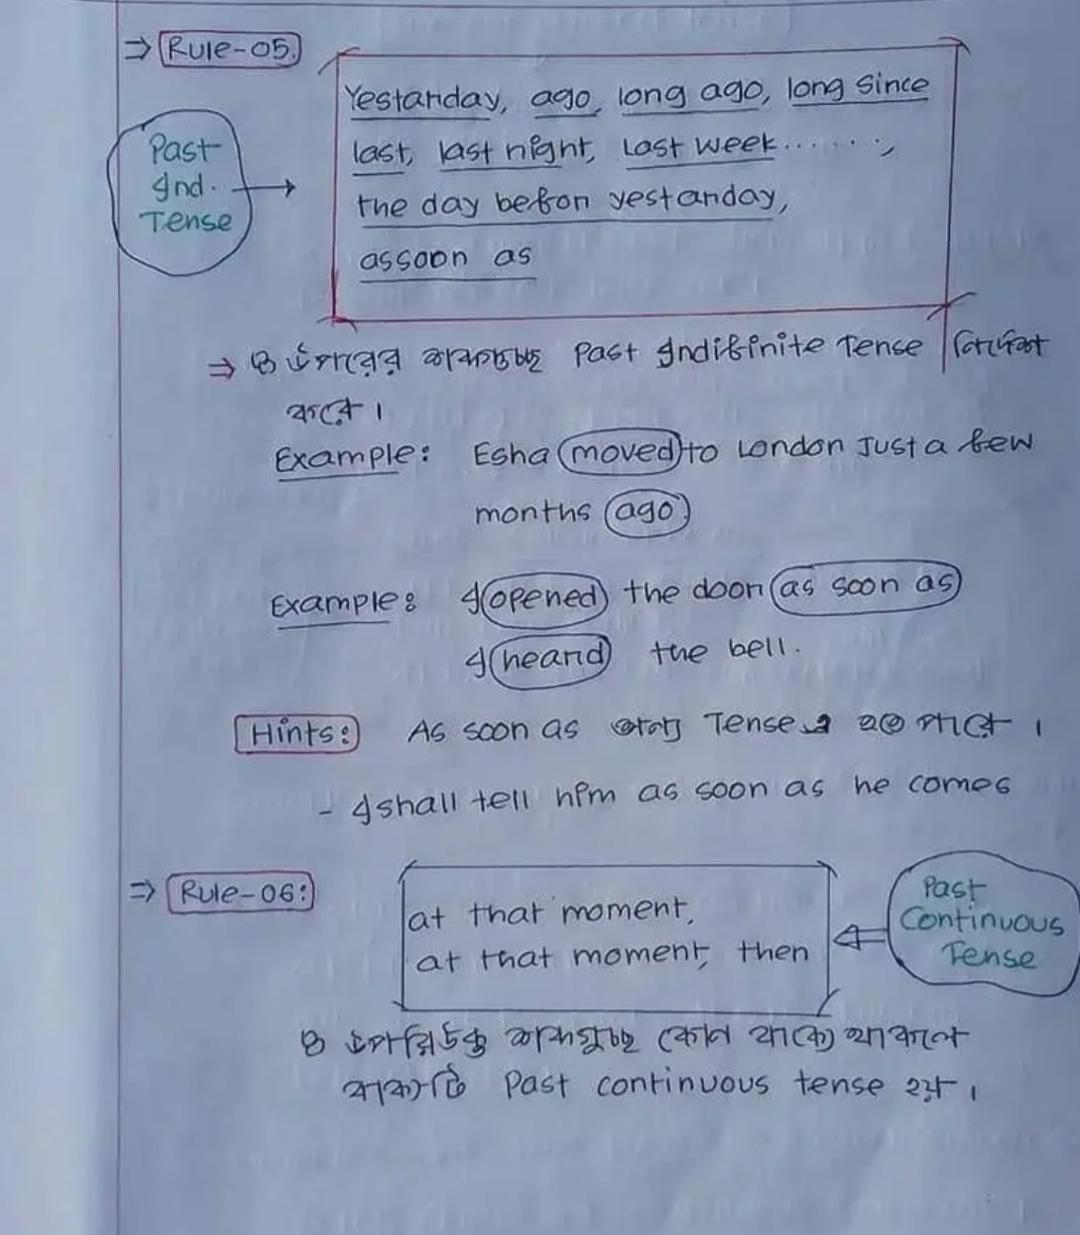 ⇒ Rule-05.
Yestarday, ago, long ago, long since
last, last night, Last week......,
Past Ind. Tense →
the day befor yestarday,
assoon as
⇒ ⊕ উপরের বাক্যগুচ্ছ Past Indifinite Tense নির্দেশ
করে।
Example: Esha moved to London Just a few
months ago
Example: I opened the door as soon as
I heard the bell.
Hints: As soon as অন্য Tense এ হতে পারে।
- I shall tell him as soon as he comes
⇒ Rule-06:
at that moment,
at that moment, then
Past Continuous Tense
বাক্যে থাকলে
বাক্যটি Past continuous tense হয়।